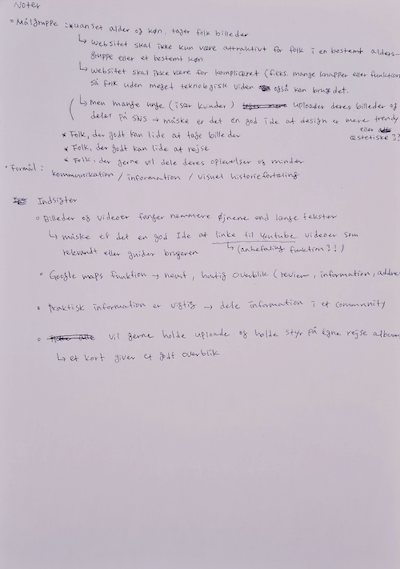 Noter
• Målgruppe : uanset alder og køn, tager folk billeder
↳ websitet skal ikke kun være attraktivt for folk i en bestemt alders-
gruppe eller et bestemt køn
↳ websitet skal ikke være for kompliceret (f.eks. mange knapper eller funktion
så folk uden meget teknologisk viden også kan bruge det.
↳ Men mange unge (især kvinder) uploader deres billeder og
delt på SNS → måske er det en god ide at design er mere trendy
eller
æstetiske ??
* Folk, der godt kan lide at tage billeder
* Folk, der godt kan lide at rejse
* Folk, der gerne vil dele deres oplevelser og minder
• Formål : kommunikation / information / visuel historiefortælling
Indsigter
• Billeder og videoer fanger nemmere øjnene end lange tekster
↳ måske er det en god Ide at linke til Youtube videoer som
relevant eller guider brugeren
↳ (anbefaling funktion ?!)
• Google maps funktion → nemt, hurtig overblik (review, information, addre
• Praktisk information er vigtig → dele information i et community
• vil gerne holde uploade og holde styr på egne rejse album
↳ et kort giver et godt overblik